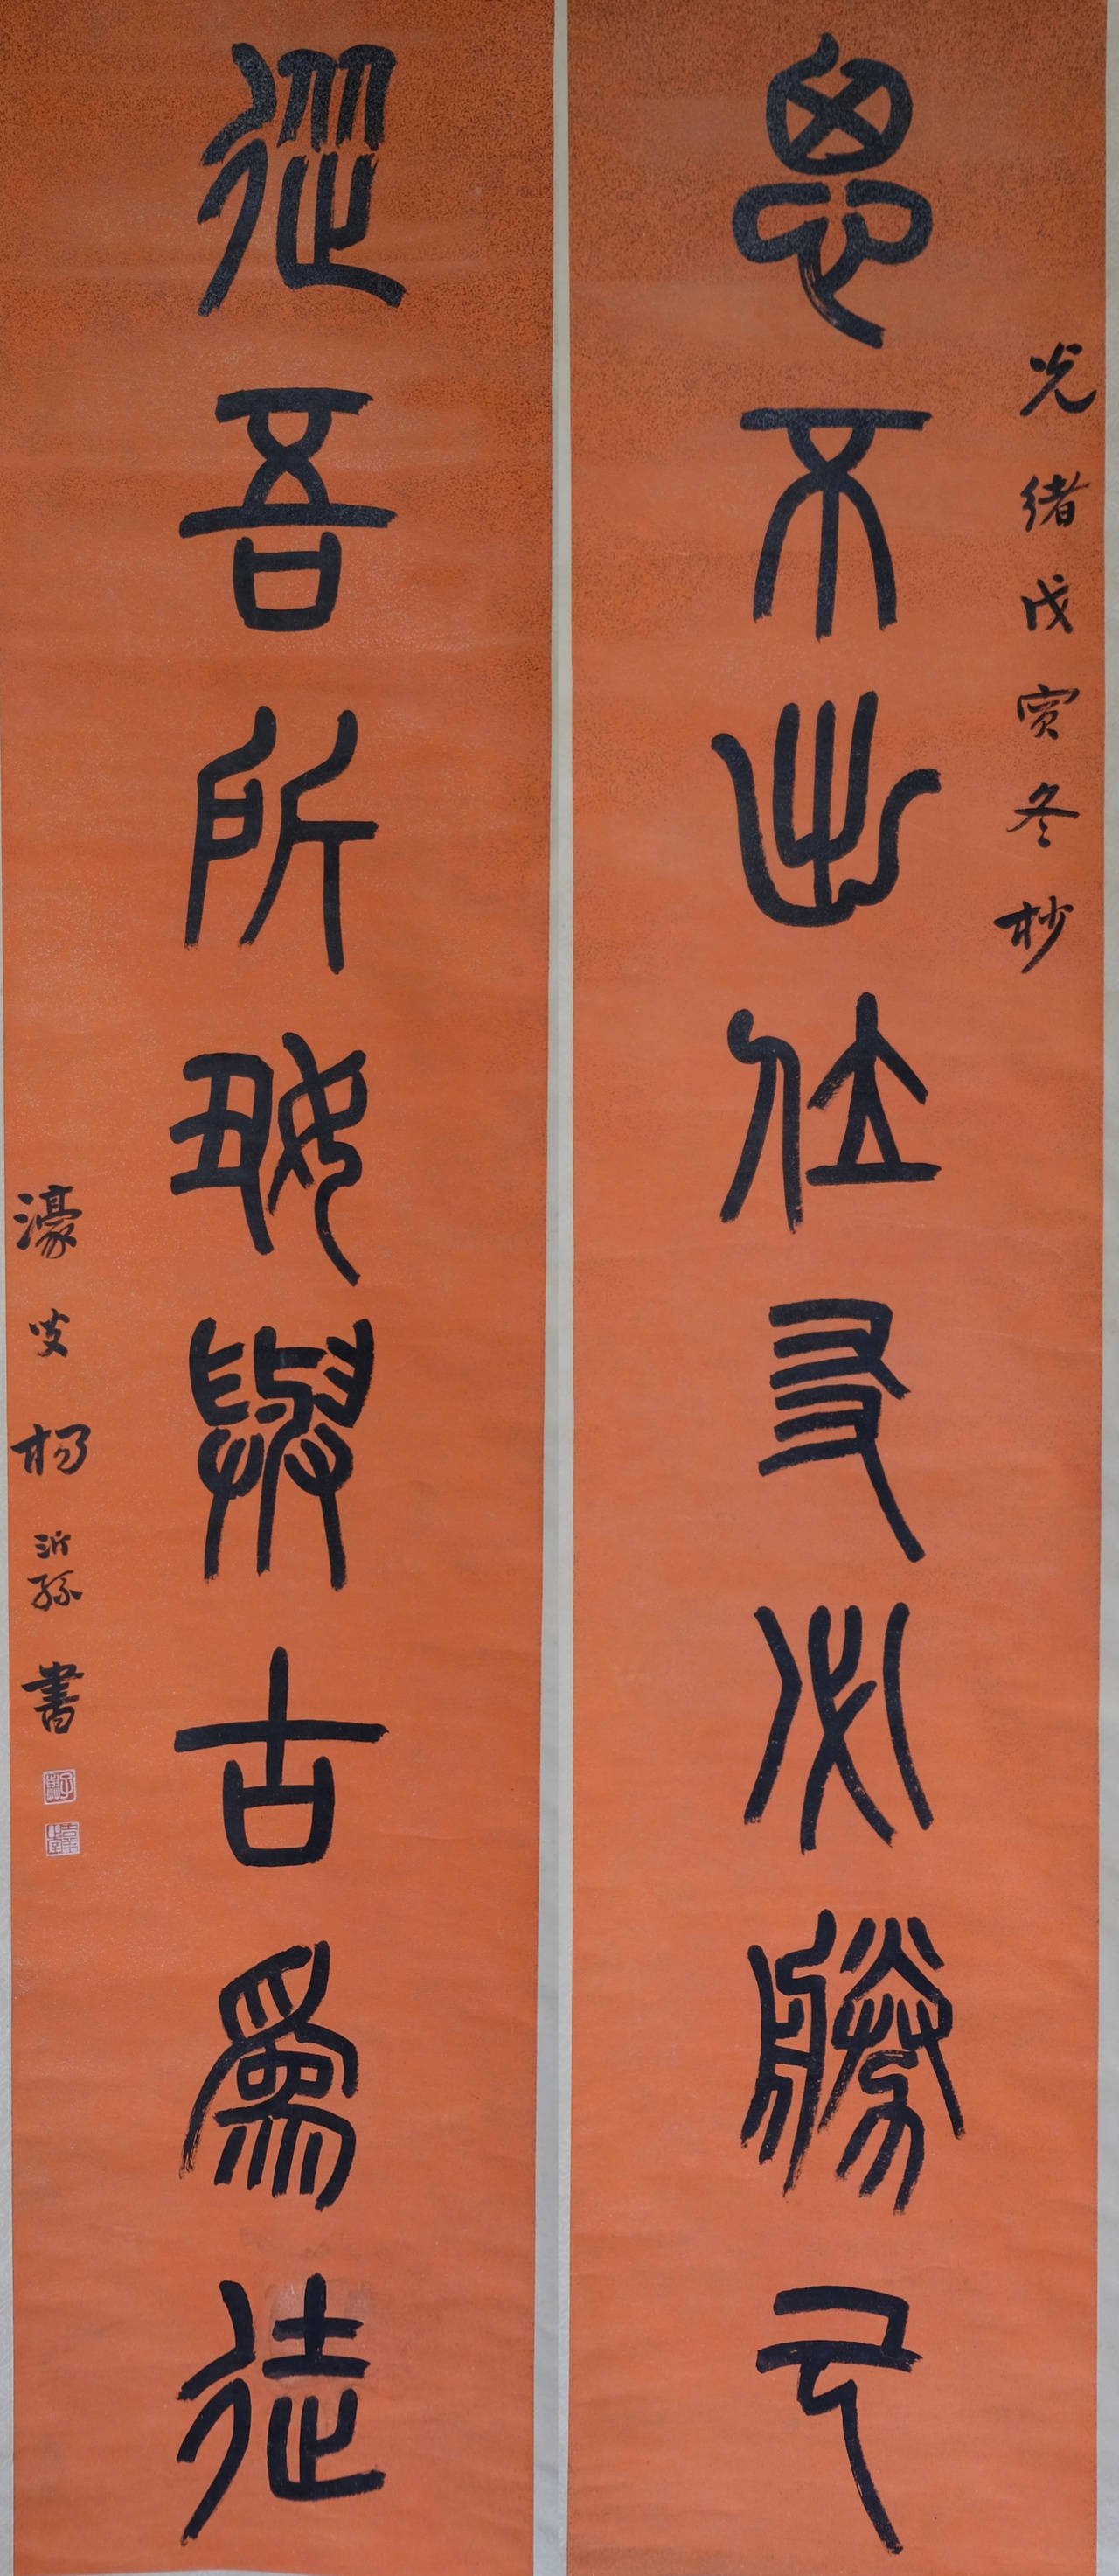 光緒戊寅冬杪
思不出位友必勝己
從吾所好與古爲徒
濠叟楊沂孫書